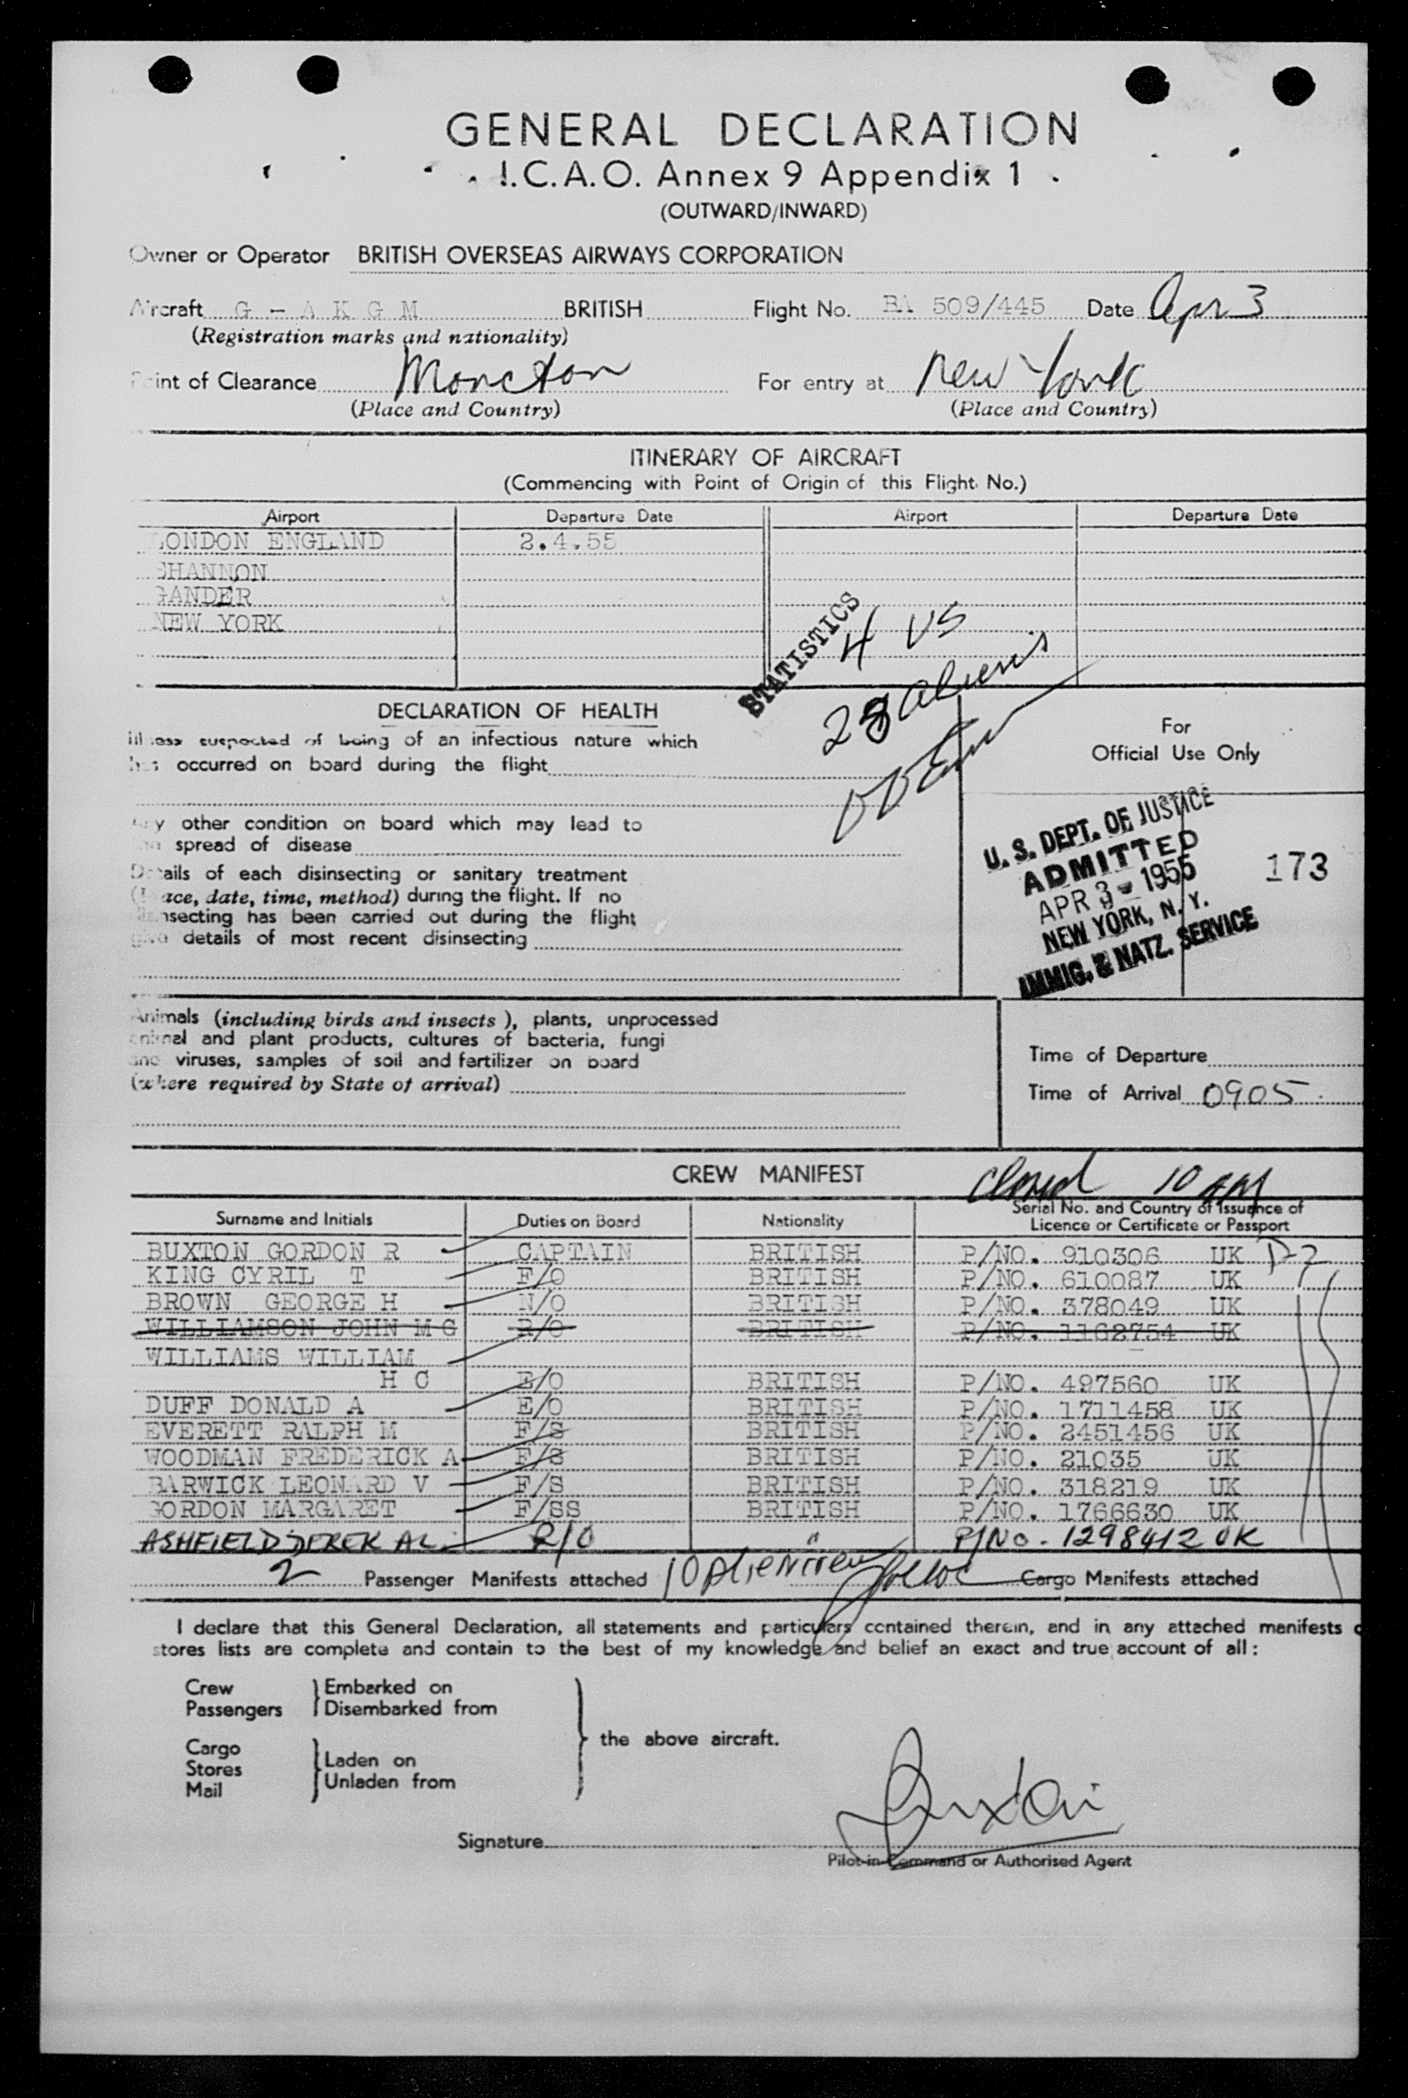 GENERAL DECLARATION
I.C.A.O. Annex 9 Appendix 1
(OUTWARD/INWARD)
Owner or Operator BRITISH OVERSEAS AIRWAYS CORPORATION
Aircraft G - A K G M BRITISH Flight No. BA 509/445 Date Apr 3
(Registration marks and nationality)
Point of Clearance Moncton For entry at New York
(Place and Country) (Place and Country)
ITINERARY OF AIRCRAFT
(Commencing with Point of Origin of this Flight No.)
Airport Departure Date Airport Departure Date
LONDON ENGLAND 2.4.55
SHANNON
GANDER
NEW YORK
STATISTICS
4 US
28 aliens
DECLARATION OF HEALTH
Illness suspected of being of an infectious nature which
has occurred on board during the flight
Any other condition on board which may lead to
the spread of disease
Details of each disinsecting or sanitary treatment
(Place, date, time, method) during the flight. If no
disinsecting has been carried out during the flight
give details of most recent disinsecting
For
Official Use Only
U. S. DEPT. OF JUSTICE
ADMITTED
APR 3 - 1955
NEW YORK, N. Y.
IMMIG. & NATZ. SERVICE
173
Animals (including birds and insects), plants, unprocessed
animal and plant products, cultures of bacteria, fungi
and viruses, samples of soil and fertilizer on board
(where required by State of arrival)
Time of Departure
Time of Arrival 0905
CREW MANIFEST
Closed 10 AM
Surname and Initials Duties on Board Nationality Serial No. and Country of Issuance of
Licence or Certificate or Passport
BUXTON GORDON R CAPTAIN BRITISH P/NO. 910306 UK D-2
KING CYRIL T F/O BRITISH P/NO. 610087 UK
BROWN GEORGE H N/O BRITISH P/NO. 378049 UK
WILLIAMSON JOHN M G R/O BRITISH P/NO. 1162754 UK
WILLIAMS WILLIAM
H C E/O BRITISH P/NO. 497560 UK
DUFF DONALD A E/O BRITISH P/NO. 1711458 UK
EVERETT RALPH M F/S BRITISH P/NO. 2451456 UK
WOODMAN FREDERICK A F/S BRITISH P/NO. 21035 UK
BARWICK LEONARD V F/S BRITISH P/NO. 318219 UK
GORDON MARGARET F/SS BRITISH P/NO. 1766630 UK
ASHFIELD DEREK A L R/O " P/No. 1298412 UK
2 Passenger Manifests attached 10 Alien crew Cargo Manifests attached
I declare that this General Declaration, all statements and particulars contained therein, and in any attached manifests
stores lists are complete and contain to the best of my knowledge and belief an exact and true account of all:
Crew
Passengers
Embarked on
Disembarked from
Cargo
Stores
Mail
Laden on
Unladen from
the above aircraft.
Signature Buxton
Pilot-in-Command or Authorised Agent